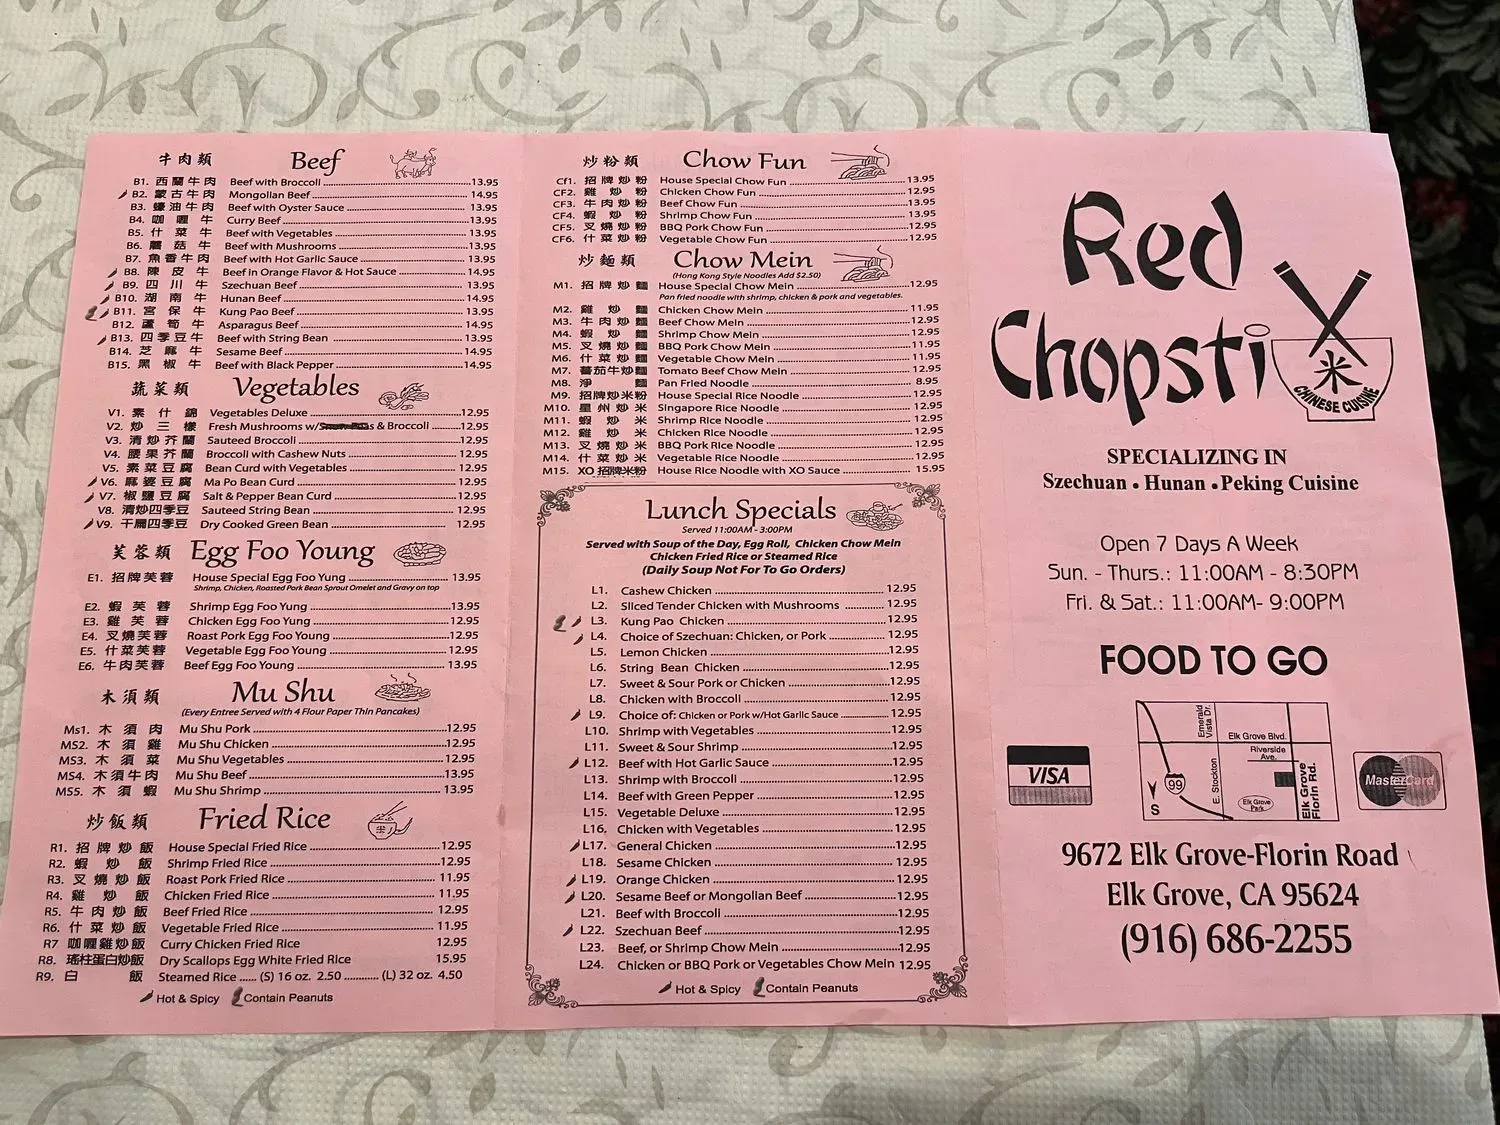 牛肉類 Beef
B1. 西蘭牛肉 Beef with Broccoli 13.95
B2. 蒙古牛肉 Mongolian Beef 14.95
B3. 蠔油牛肉 Beef with Oyster Sauce 13.95
B4. 咖喱牛 Curry Beef 13.95
B5. 什菜牛 Beef with Vegetables 13.95
B6. 蘑菇牛 Beef with Mushrooms 13.95
B7. 魚香牛肉 Beef with Hot Garlic Sauce 13.95
B8. 陳皮牛 Beef in Orange Flavor & Hot Sauce 14.95
B9. 四川牛 Szechuan Beef 13.95
B10. 湖南牛 Hunan Beef 14.95
B11. 宮保牛 Kung Pao Beef 13.95
B12. 蘆筍牛 Asparagus Beef 14.95
B13. 四季豆牛 Beef with String Bean 13.95
B14. 芝麻牛 Sesame Beef 14.95
B15. 黑椒牛 Beef with Black Pepper 14.95
蔬菜類 Vegetables
V1. 素什錦 Vegetables Deluxe 12.95
V2. 炒三樣 Fresh Mushrooms w/ & Broccoli 12.95
V3. 清炒芥蘭 Sauteed Broccoli 12.95
V4. 腰果芥蘭 Broccoli with Cashew Nuts 12.95
V5. 素菜豆腐 Bean Curd with Vegetables 12.95
V6. 麻婆豆腐 Ma Po Bean Curd 12.95
V7. 椒鹽豆腐 Salt & Pepper Bean Curd 12.95
V8. 清炒四季豆 Sauteed String Bean 12.95
V9. 干扁四季豆 Dry Cooked Green Bean 12.95
芙蓉類 Egg Foo Young
E1. 招牌芙蓉 House Special Egg Foo Yung 13.95
Shrimp, Chicken, Roasted Pork Bean Sprout Omelet and Gravy on top
E2. 蝦芙蓉 Shrimp Egg Foo Yung 13.95
E3. 雞芙蓉 Chicken Egg Foo Yung 12.95
E4. 叉燒芙蓉 Roast Pork Egg Foo Young 12.95
E5. 什菜芙蓉 Vegetable Egg Foo Young 12.95
E6. 牛肉芙蓉 Beef Egg Foo Young 13.95
木須類 Mu Shu
(Every Entree Served with 4 Flour Paper Thin Pancakes)
Ms1. 木須肉 Mu Shu Pork 12.95
MS2. 木須雞 Mu Shu Chicken 12.95
MS3. 木須菜 Mu Shu Vegetables 12.95
MS4. 木須牛肉 Mu Shu Beef 13.95
MS5. 木須蝦 Mu Shu Shrimp 13.95
炒飯類 Fried Rice
R1. 招牌炒飯 House Special Fried Rice 12.95
R2. 蝦炒飯 Shrimp Fried Rice 12.95
R3. 叉燒炒飯 Roast Pork Fried Rice 11.95
R4. 雞炒飯 Chicken Fried Rice 11.95
R5. 牛肉炒飯 Beef Fried Rice 12.95
R6. 什菜炒飯 Vegetable Fried Rice 11.95
R7 咖喱雞炒飯 Curry Chicken Fried Rice 12.95
R8. 瑤柱蛋白炒飯 Dry Scallops Egg White Fried Rice 15.95
R9. 白飯 Steamed Rice ...... (S) 16 oz. 2.50 ............ (L) 32 oz. 4.50
Hot & Spicy Contain Peanuts
炒粉類 Chow Fun
Cf1. 招牌炒粉 House Special Chow Fun 13.95
CF2. 雞炒粉 Chicken Chow Fun 12.95
CF3. 牛肉炒粉 Beef Chow Fun 13.95
CF4. 蝦炒粉 Shrimp Chow Fun 13.95
CF5. 叉燒炒粉 BBQ Pork Chow Fun 12.95
CF6. 什菜炒粉 Vegetable Chow Fun 12.95
炒麵類 Chow Mein
(Hong Kong Style Noodles Add $2.50)
M1. 招牌炒麵 House Special Chow Mein 12.95
Pan fried noodle with shrimp, chicken & pork and vegetables.
M2. 雞炒麵 Chicken Chow Mein 11.95
M3. 牛肉炒麵 Beef Chow Mein 12.95
M4. 蝦炒麵 Shrimp Chow Mein 12.95
M5. 叉燒炒麵 BBQ Pork Chow Mein 11.95
M6. 什菜炒麵 Vegetable Chow Mein 11.95
M7. 蕃茄牛炒麵 Tomato Beef Chow Mein 12.95
M8. 淨麵 Pan Fried Noodle 8.95
M9. 招牌炒米粉 House Special Rice Noodle 12.95
M10. 星州炒米 Singapore Rice Noodle 12.95
M11. 蝦炒米 Shrimp Rice Noodle 12.95
M12. 雞炒米 Chicken Rice Noodle 12.95
M13. 叉燒炒米 BBQ Pork Rice Noodle 12.95
M14. 什菜炒米 Vegetable Rice Noodle 12.95
M15. XO 招牌米粉 House Rice Noodle with XO Sauce 15.95
Lunch Specials
Served 11:00AM - 3:00PM
Served with Soup of the Day, Egg Roll, Chicken Chow Mein
Chicken Fried Rice or Steamed Rice
(Daily Soup Not For To Go Orders)
L1. Cashew Chicken 12.95
L2. Sliced Tender Chicken with Mushrooms 12.95
L3. Kung Pao Chicken 12.95
L4. Choice of Szechuan: Chicken, or Pork 12.95
L5. Lemon Chicken 12.95
L6. String Bean Chicken 12.95
L7. Sweet & Sour Pork or Chicken 12.95
L8. Chicken with Broccoli 12.95
L9. Choice of: Chicken or Pork w/Hot Garlic Sauce 12.95
L10. Shrimp with Vegetables 12.95
L11. Sweet & Sour Shrimp 12.95
L12. Beef with Hot Garlic Sauce 12.95
L13. Shrimp with Broccoli 12.95
L14. Beef with Green Pepper 12.95
L15. Vegetable Deluxe 12.95
L16. Chicken with Vegetables 12.95
L17. General Chicken 12.95
L18. Sesame Chicken 12.95
L19. Orange Chicken 12.95
L20. Sesame Beef or Mongolian Beef 12.95
L21. Beef with Broccoli 12.95
L22. Szechuan Beef 12.95
L23. Beef, or Shrimp Chow Mein 12.95
L24. Chicken or BBQ Pork or Vegetables Chow Mein 12.95
Hot & Spicy Contain Peanuts
Red
Chopsti
米
CHINESE CUISINE
SPECIALIZING IN
Szechuan • Hunan • Peking Cuisine
Open 7 Days A Week
Sun. - Thurs.: 11:00AM - 8:30PM
Fri. & Sat.: 11:00AM- 9:00PM
FOOD TO GO
Emerald Vista Dr.
Elk Grove Blvd.
Riverside Ave.
99
E. Stockton
Elk Grove Park
Elk Grove Florin Rd.
S
VISA
MasterCard
9672 Elk Grove-Florin Road
Elk Grove, CA 95624
(916) 686-2255